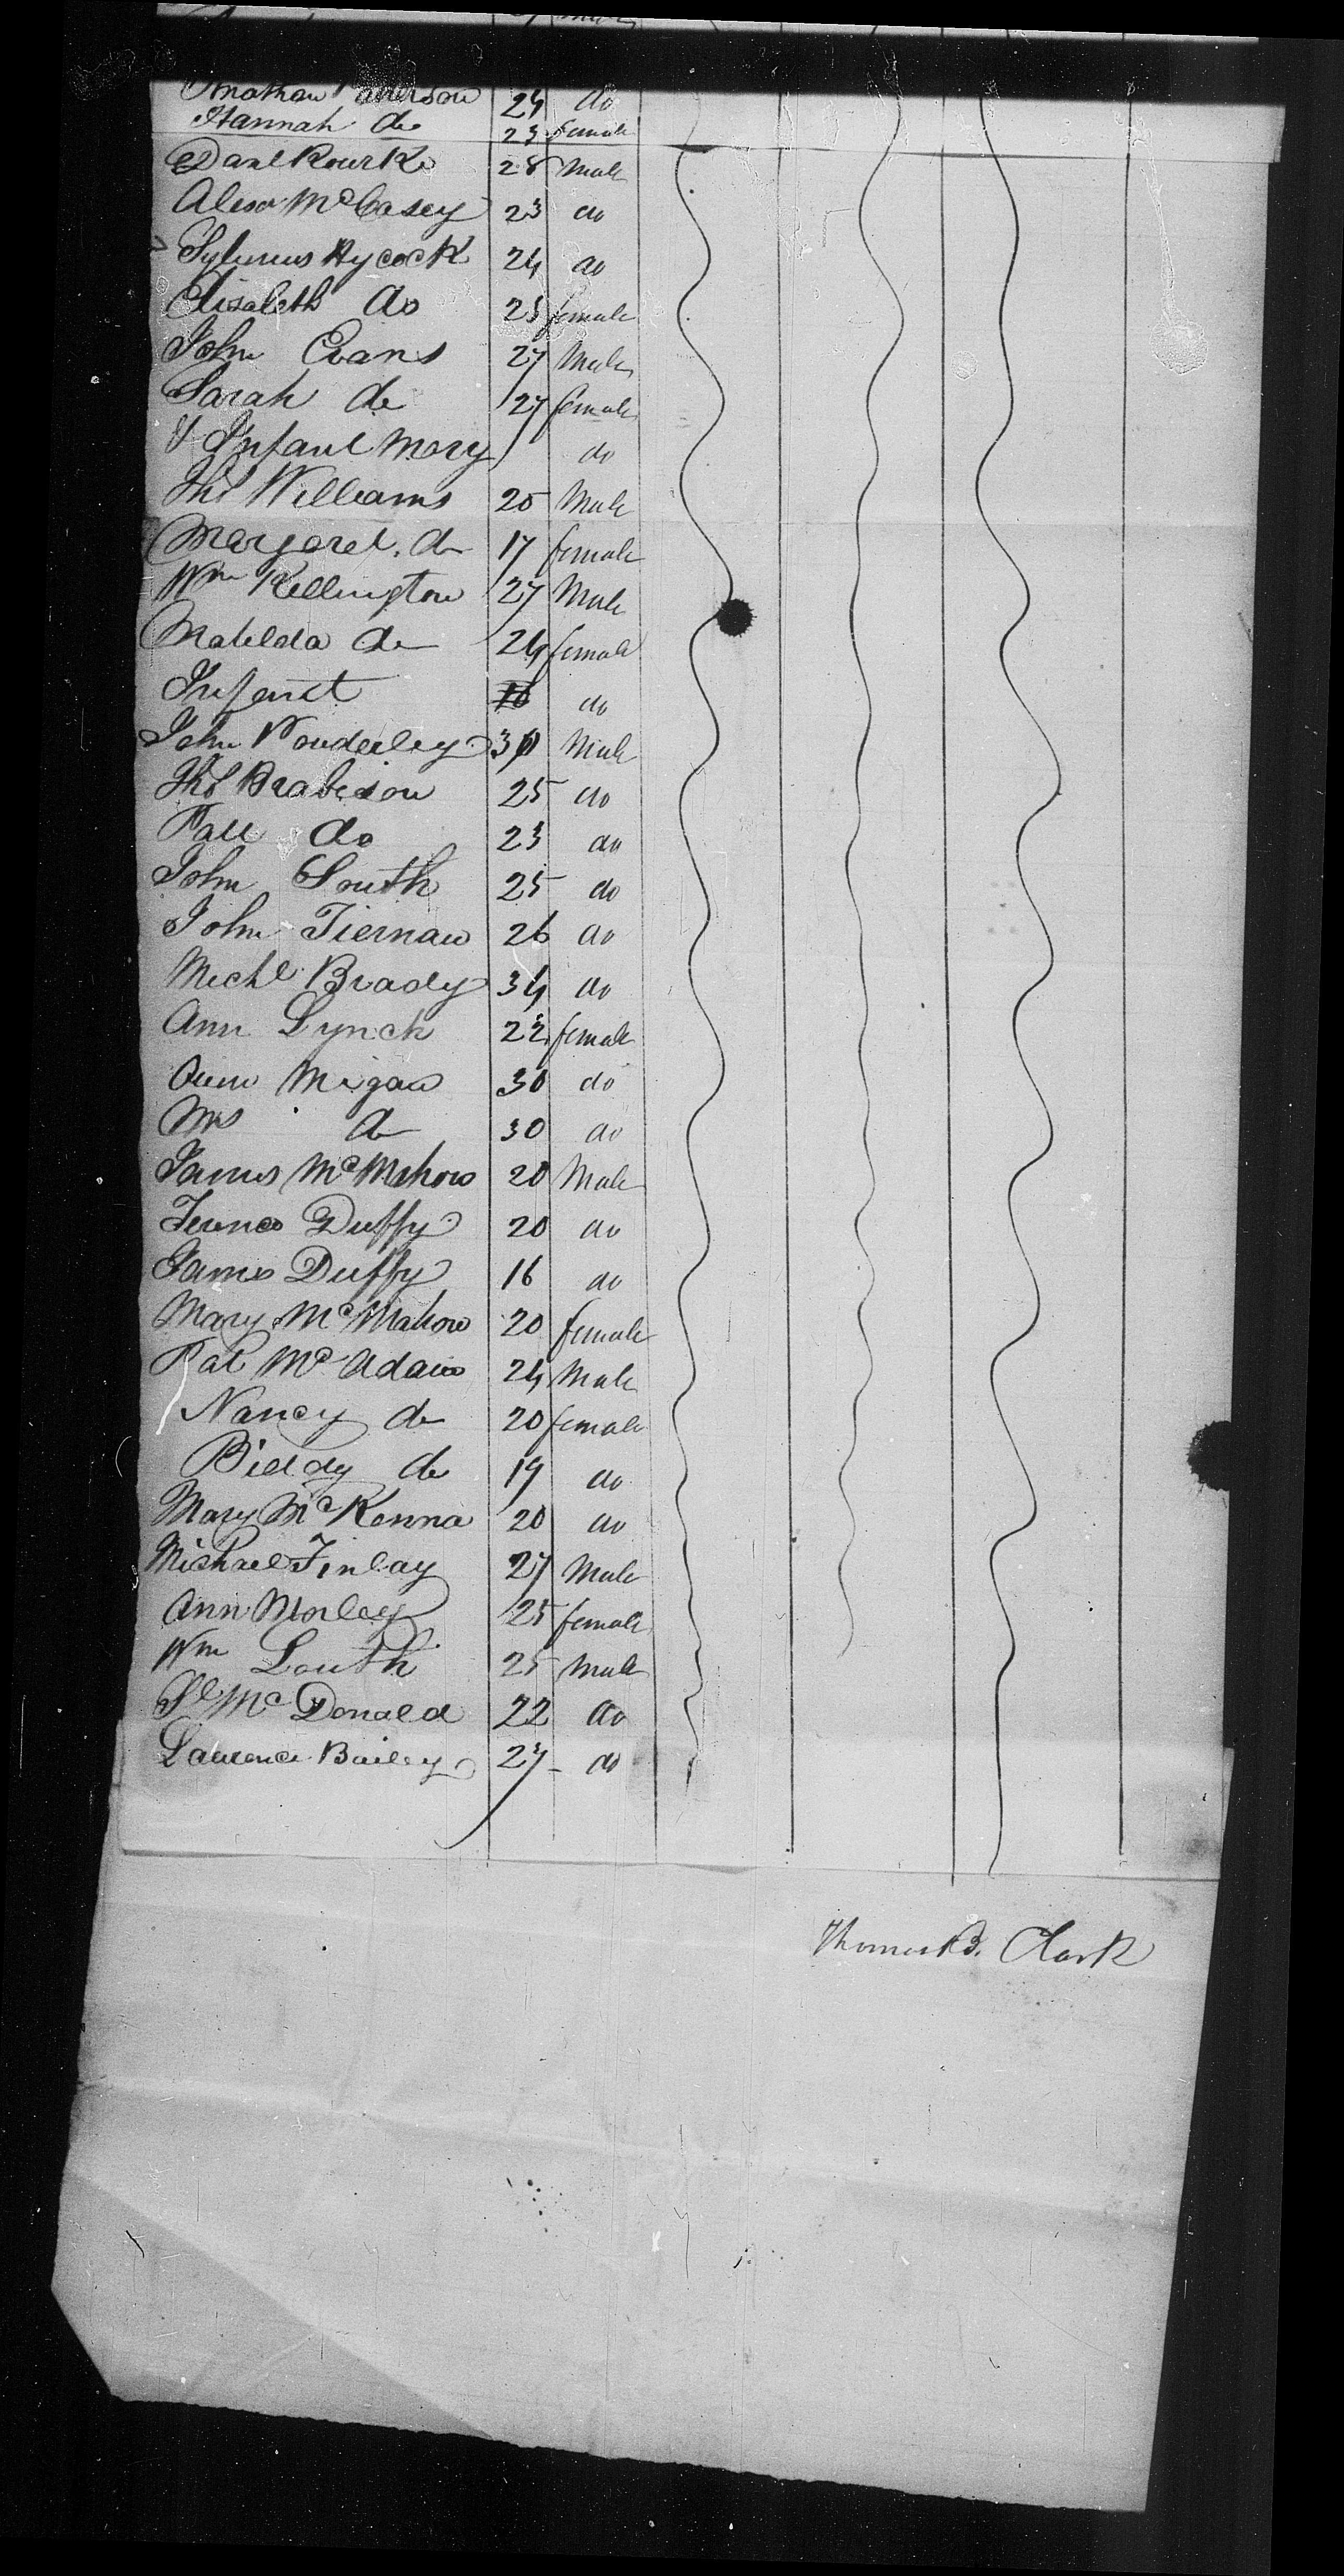 Jonathan Patterson 24 do
Hannah do 23 female
Danl Rourke 28 Male
Alexr McCasey 23 do
Sylvenus Hycock 24 do
Elisabeth do 25 female
John Evans 27 Male
Sarah do 27 female
& Infant Mary do
Thos Williams 25 Male
Margaret do 17 female
Wm Kellington 27 Male
Matelda do 24 female
Infant do
John Wonderley 30 Male
Thos Brabeson 25 do
Patt do 23 do
John South 25 do
John Tiernan 26 do
Michl Brady 34 do
Ann Lynch 22 female
Migan 30 do
Mrs do 30 do
James McMahon 20 Male
Terence Duffy 20 do
James Duffy 16 do
Mary McMahon 20 female
Pat McAdam 24 Male
Nancy do 20 female
Biddy do 19 do
Mary McKenna 20 do
Michael Finlay 27 Male
Ann Morley 25 female
Wm Louth 25 Male
McDonald 22 do
Laurence Bailey 27 do
Thomas B. Clark